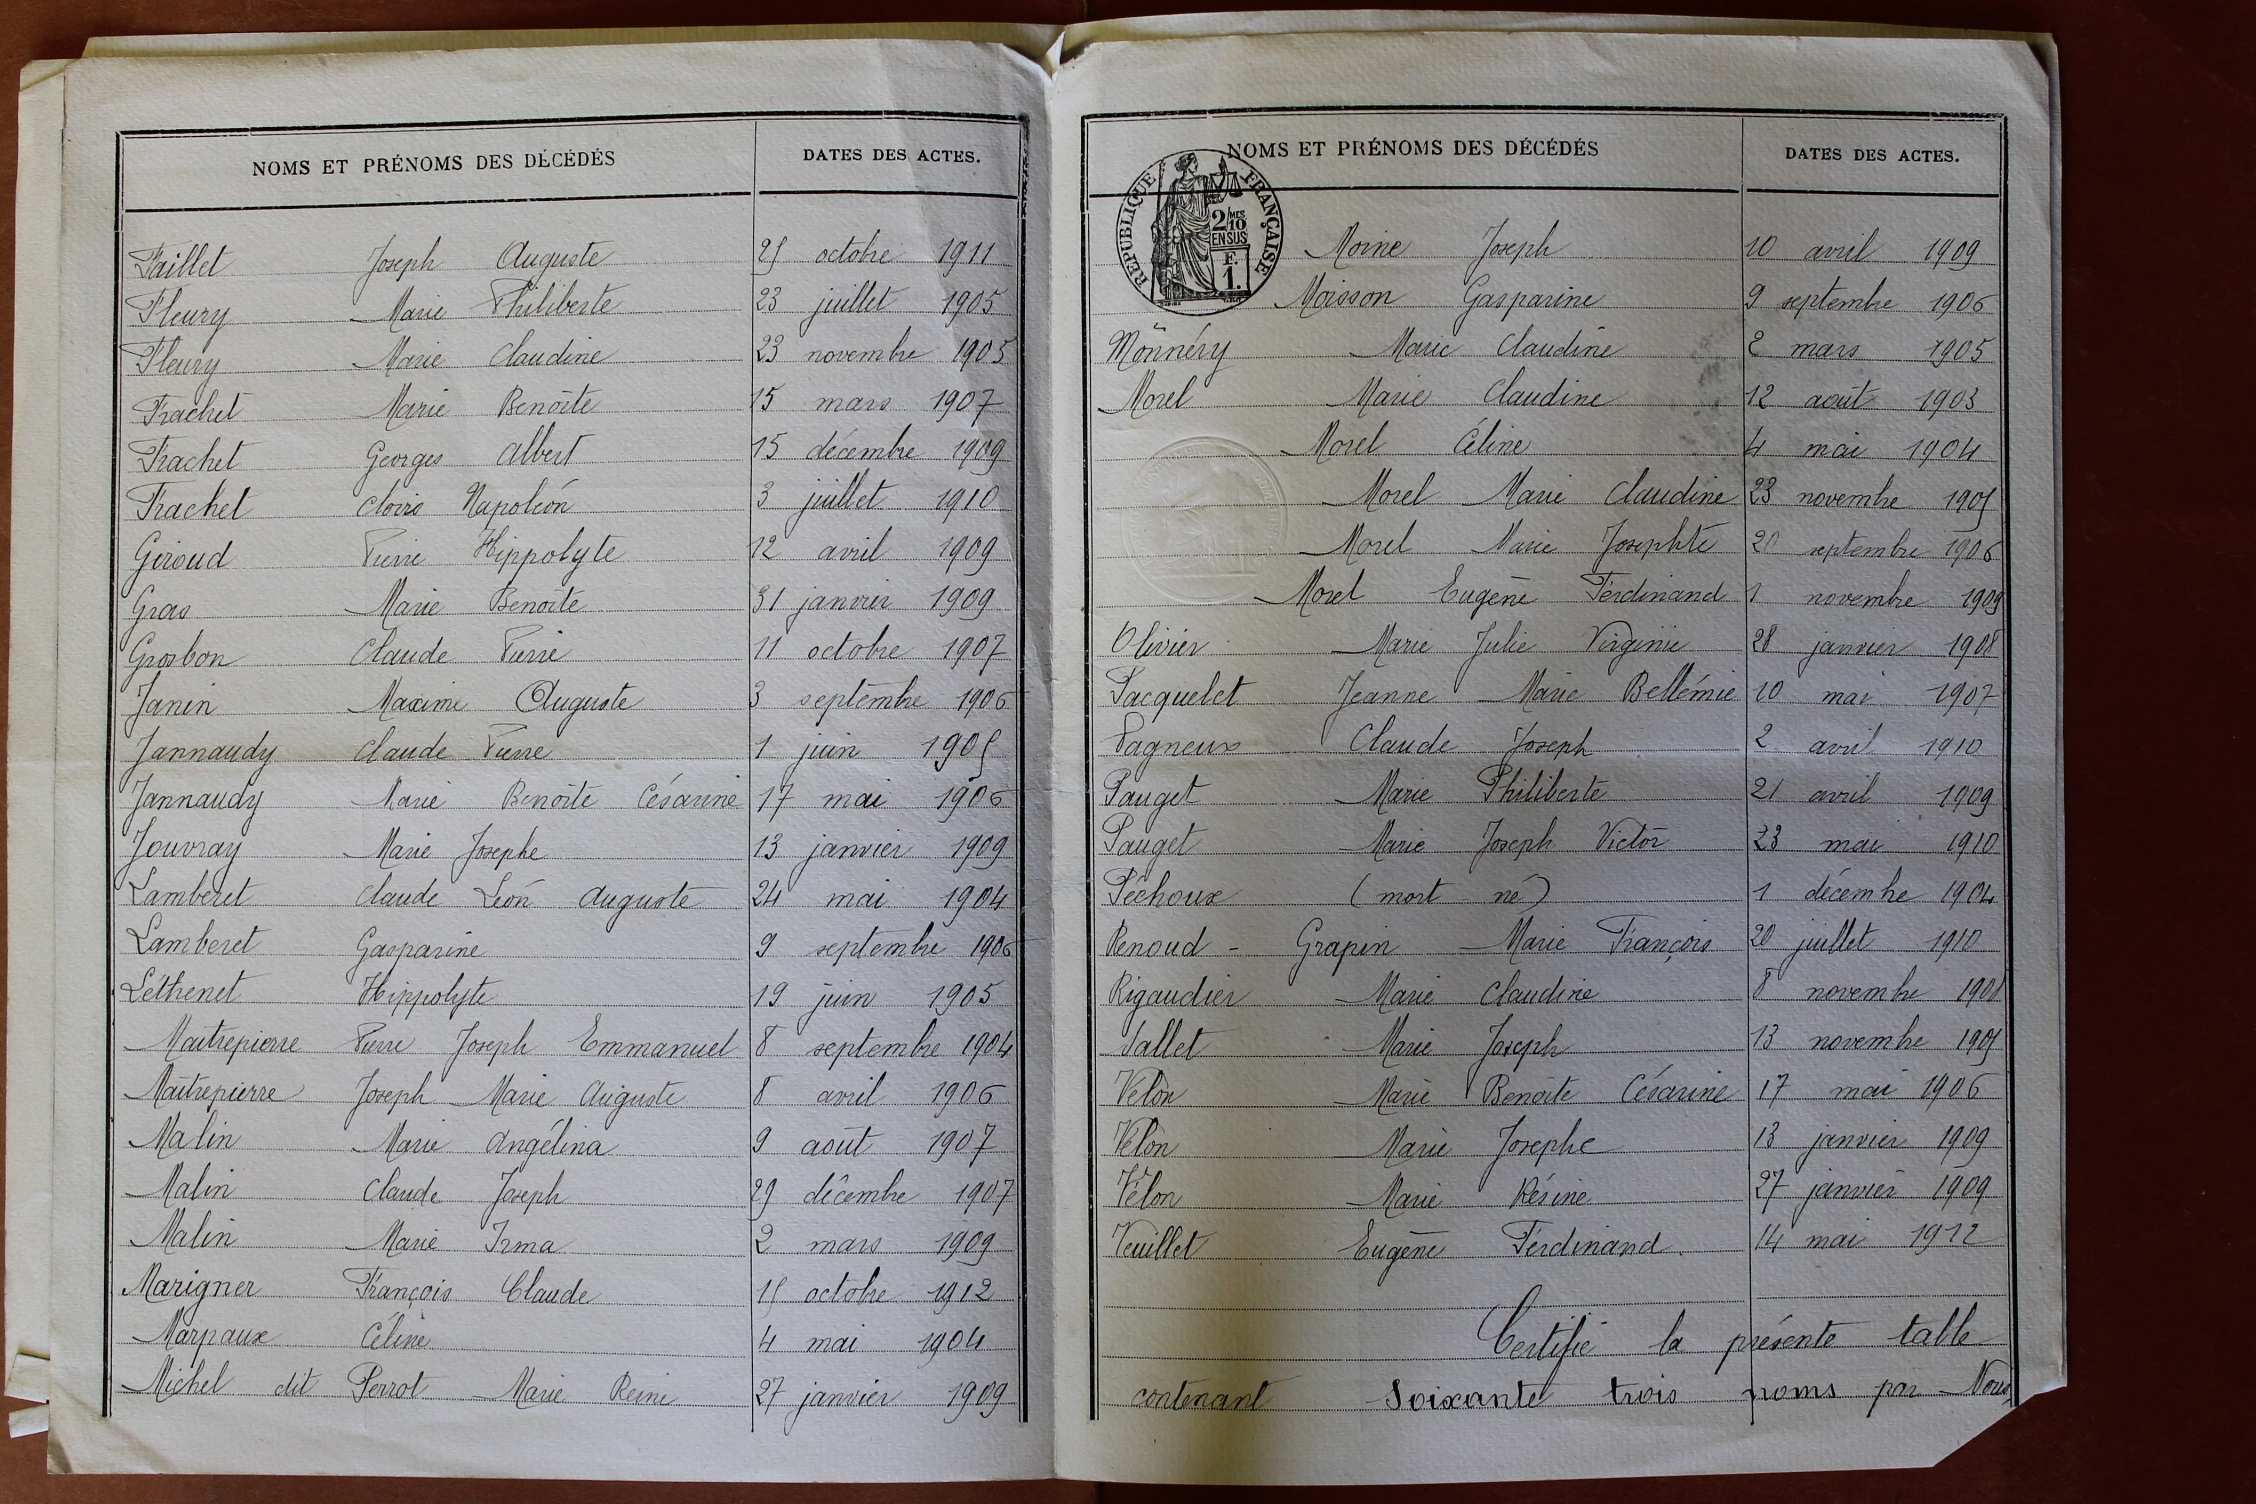 NOMS ET PRÉNOMS DES DÉCÉDÉS DATES DES ACTES.
Paillet Joseph Auguste 25 octobre 1911
Fleury Marie Philiberte 23 juillet 1905
Fleury Marie Claudine 23 novembre 1905
Frachet Marie Benoîte 15 mars 1907
Frachet Georges Albert 15 décembre 1909
Frachet Clovis Napoléon 3 juillet 1910
Giroud Pierre Hippolyte 12 avril 1909
Gras Marie Benoîte 31 janvier 1909
Grosbon Claude Pierre 11 octobre 1907
Janin Maxime Auguste 3 septembre 1906
Jannaudy Claude Pierre 1 juin 1905
Jannaudy Marie Benoîte Césarine 17 mai 1906
Jouvray Marie Josephe 13 janvier 1909
Lamberet Claude Léon Auguste 24 mai 1904
Lamberet Gasparine 9 septembre 1906
Léthenet Hippolyte 19 juin 1905
Maitrepierre Pierre Joseph Emmanuel 8 septembre 1904
Maîtrepierre Joseph Marie Auguste 8 avril 1906
Malin Marie Angélina 9 août 1907
Malin Claude Joseph 29 décembre 1907
Malin Marie Irma 2 mars 1909
Marigner François Claude 15 octobre 1912
Marpaux Céline 4 mai 1904
Michel dit Perrot Marie Reine 27 janvier 1909
NOMS ET PRÉNOMS DES DÉCÉDÉS DATES DES ACTES.
RÉPUBLIQUE FRANÇAISE
2/10 MES
EN SUS
F.
1.
Moine Joseph 10 avril 1909
Moisson Gasparine 9 septembre 1906
Monnéry Marie Claudine 2 mars 1905
Morel Marie Claudine 12 août 1903
Morel Céline 4 mai 1904
Morel Marie Claudine 23 novembre 1905
Morel Marie Josephte 20 septembre 1906
Morel Eugène Ferdinand 1 novembre 1909
Olivier Marie Julie Virginie 28 janvier 1908
Pacquelet Jeanne Marie Bellémie 10 mai 1907
Pagneux Claude Joseph 2 avril 1910
Pauget Marie Philiberte 21 avril 1909
Pauget Marie Joseph Victor 23 mai 1910
Péchoux (mort né) 1 décembre 1904
Renoud - Grapin Marie François 20 juillet 1910
Rigaudier Marie Claudine 8 novembre
Sallet Marie Joseph 13 novembre 1905
Velon Marie Benoîte Césarine 17 mai 1906
Velon Marie Josephe 13 janvier 1909
Velon Marie Résine 27 janvier 1909
Veuillet Eugène Ferdinand 14 mai 1912
Certifié la présente table
contenant soixante trois noms par Nous